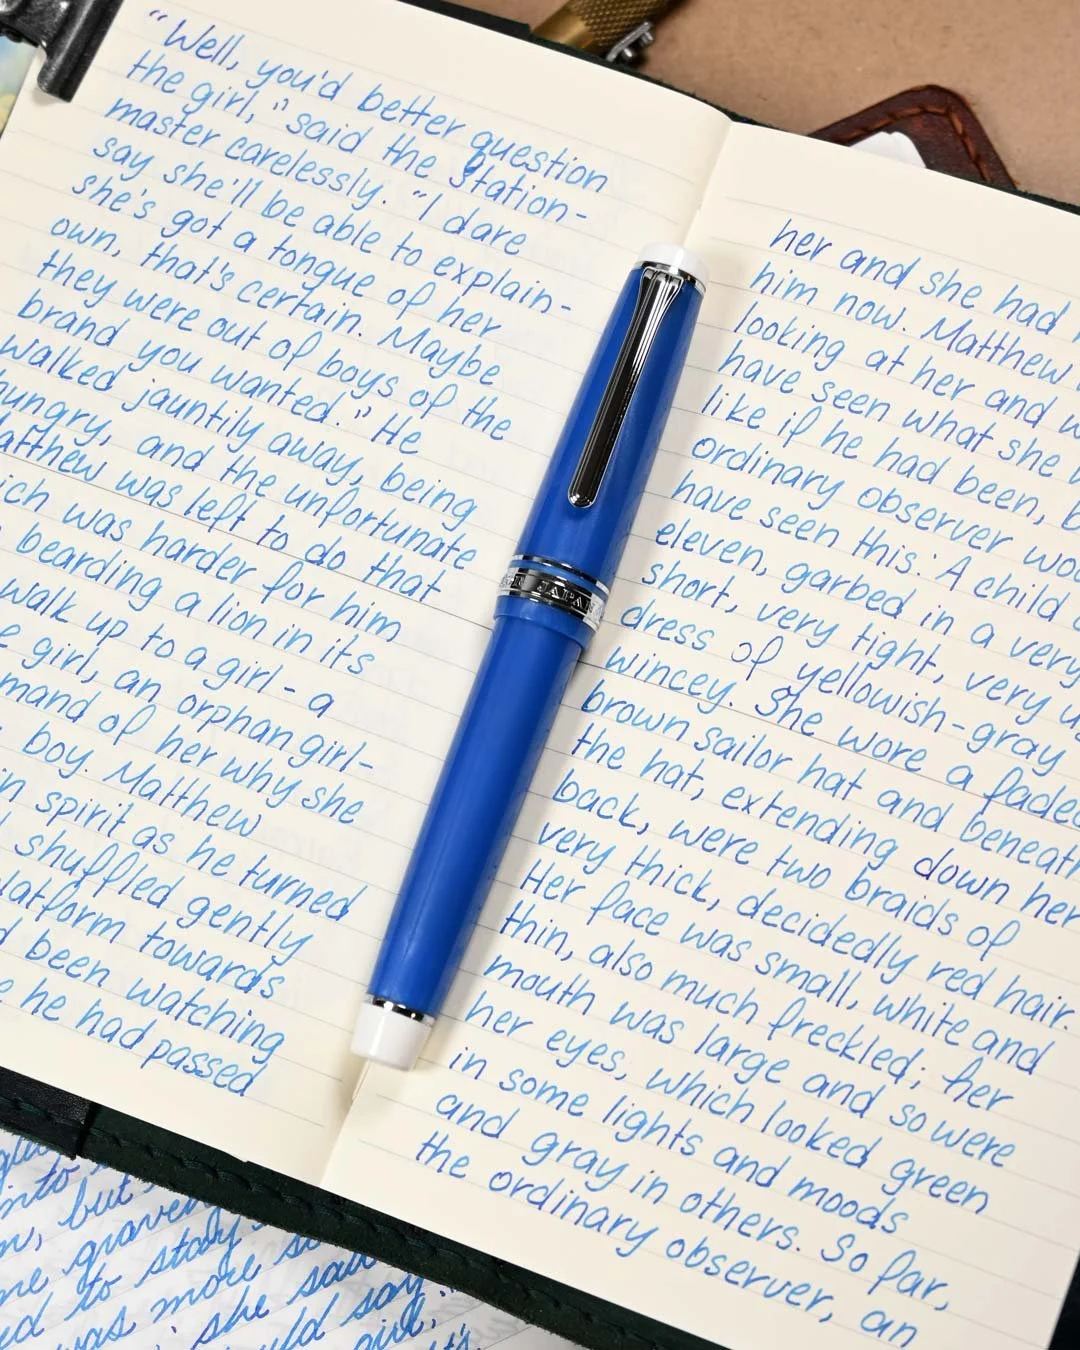 "Well, you'd better question
the girl," said the Station-
master carelessly. "I dare
say she'll be able to explain-
she's got a tongue of her
own, that's certain. Maybe
they were out of boys of the
brand you wanted." He
walked jauntily away, being
hungry, and the unfortunate
Matthew was left to do that
which was harder for him
bearding a lion in its
walk up to a girl - a
girl, an orphan girl-
mand of her why she
boy. Matthew
in spirit as he turned
shuffled gently
platform towards
been watching
he had passed
her and she had
him now. Matthew
looking at her and
have seen what she
like if he had been,
ordinary observer
have seen this: A child
eleven, garbed in a very
short, very tight, very
dress of yellowish-gray
wincey. She wore a faded
brown sailor hat and beneath
the hat, extending down her
back, were two braids of
very thick, decidedly red hair.
Her face was small, white and
thin, also much freckled; her
mouth was large and so were
her eyes, which looked green
in some lights and moods
and gray in others. So far,
the ordinary observer, an
JAPAN
into
but
graven
to stay
was more
she said
say
girl."